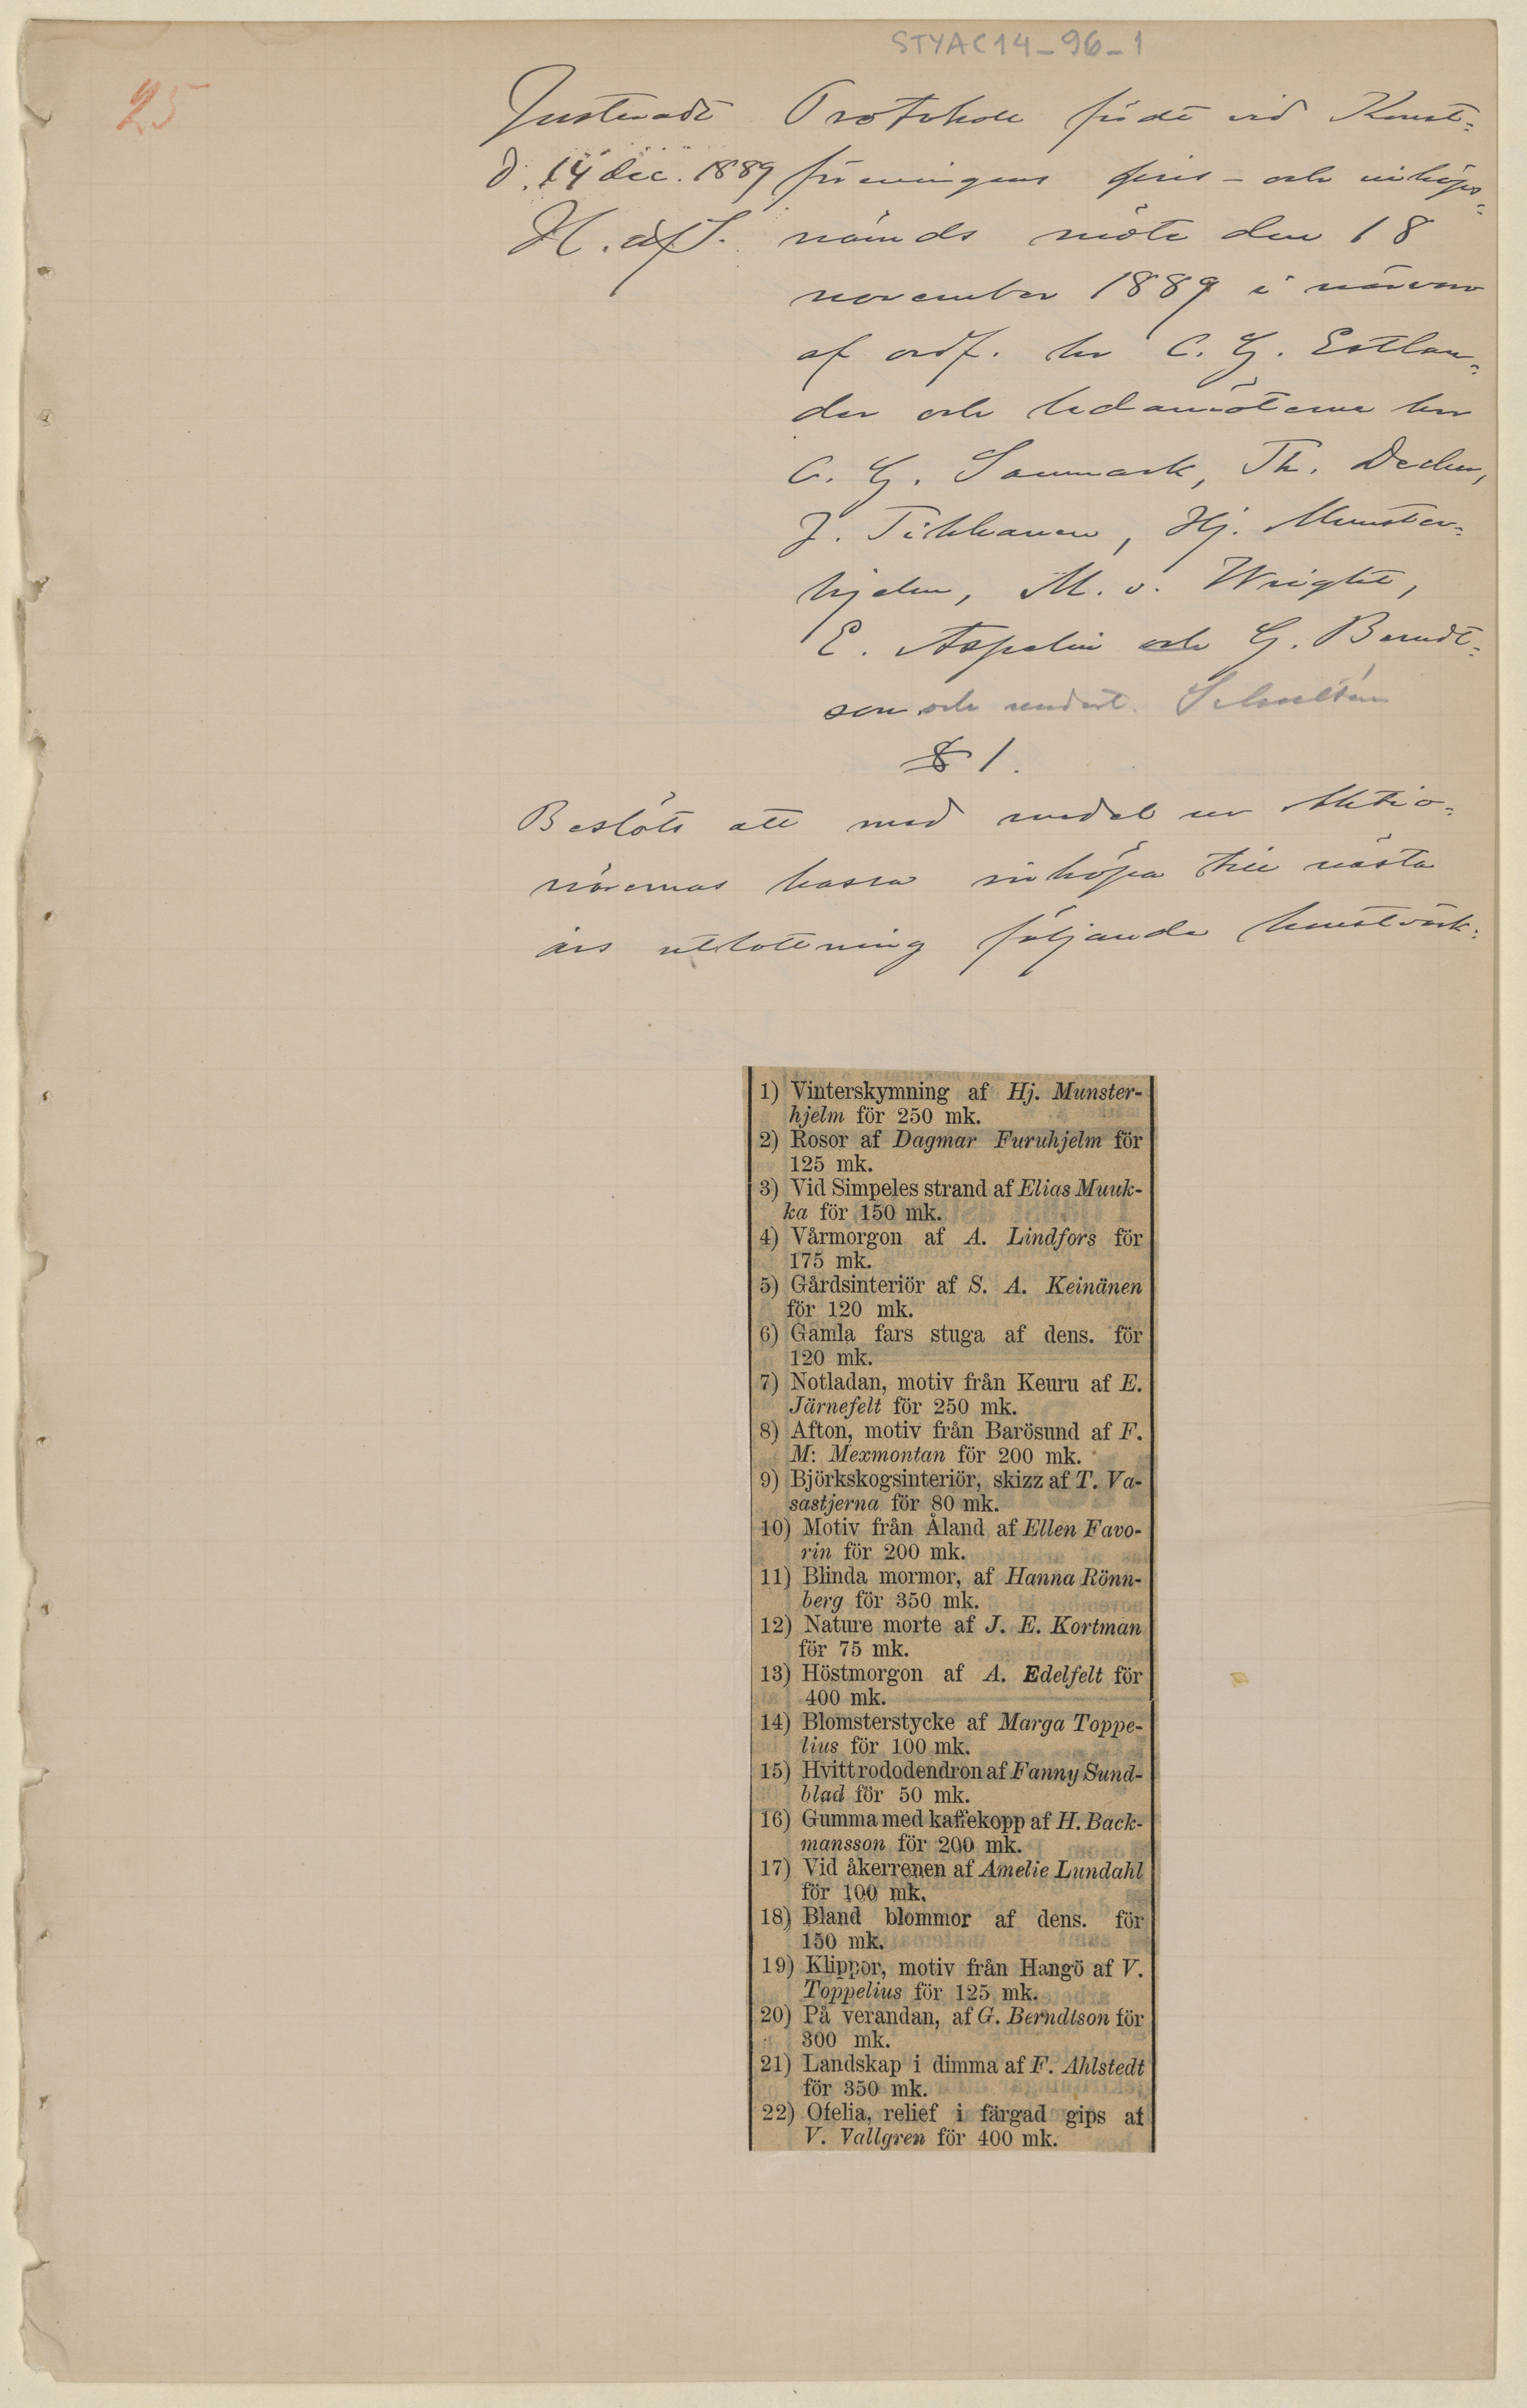 STYAC14-96-1
25
Justeradt
d. 14 dec. 1889
H. af S.
Protokoll fördt vid Konst-
föreningens pris- och inköps-
nämds möte den 18
november 1889 i närvaro
af ordf. hr C. G. Estlan-
der och ledamöterna hrr
C. G. Sanmark, Th. Decker,
J. Tikkanen, Hj. Munster-
hjelm, M. v. Wright,
E. Aspelin och G. Berndt-
son och undert. Schultén
§ 1.
Beslöts att med medel ur Aktio-
närernas kassa inköpa till nästa
års utlottning följande konstvärk:
1) Vinterskymning af Hj. Munster-
hjelm för 250 mk.
2) Rosor af Dagmar Furuhjelm för
125 mk.
3) Vid Simpeles strand af Elias Muuk-
ka för 150 mk.
4) Vårmorgon af A. Lindfors för
175 mk.
5) Gårdsinteriör af S. A. Keinänen
för 120 mk.
6) Gamla fars stuga af dens. för
120 mk.
7) Notladan, motiv från Keuru af E.
Järnefelt för 250 mk.
8) Afton, motiv från Barösund af F.
M: Mexmontan för 200 mk.
9) Björkskogsinteriör, skizz af T. Va-
sastjerna för 80 mk.
10) Motiv från Åland af Ellen Favo-
rin för 200 mk.
11) Blinda mormor, af Hanna Rönn-
berg för 350 mk.
12) Nature morte af J. E. Kortman
för 75 mk.
13) Höstmorgon af A. Edelfelt för
400 mk.
14) Blomsterstycke af Marga Toppe-
lius för 100 mk.
15) Hvitt rododendron af Fanny Sund-
blad för 50 mk.
16) Gumma med kaffekopp af H. Back-
mansson för 200 mk.
17) Vid åkerrenen af Amelie Lundahl
för 100 mk.
18) Bland blommor af dens. för
150 mk.
19) Klippor, motiv från Hangö af V.
Toppelius för 125 mk.
20) På verandan, af G. Berndtson för
300 mk.
21) Landskap i dimma af F. Ahlstedt
för 350 mk.
22) Ofelia, relief i färgad gips af
V. Vallgren för 400 mk.